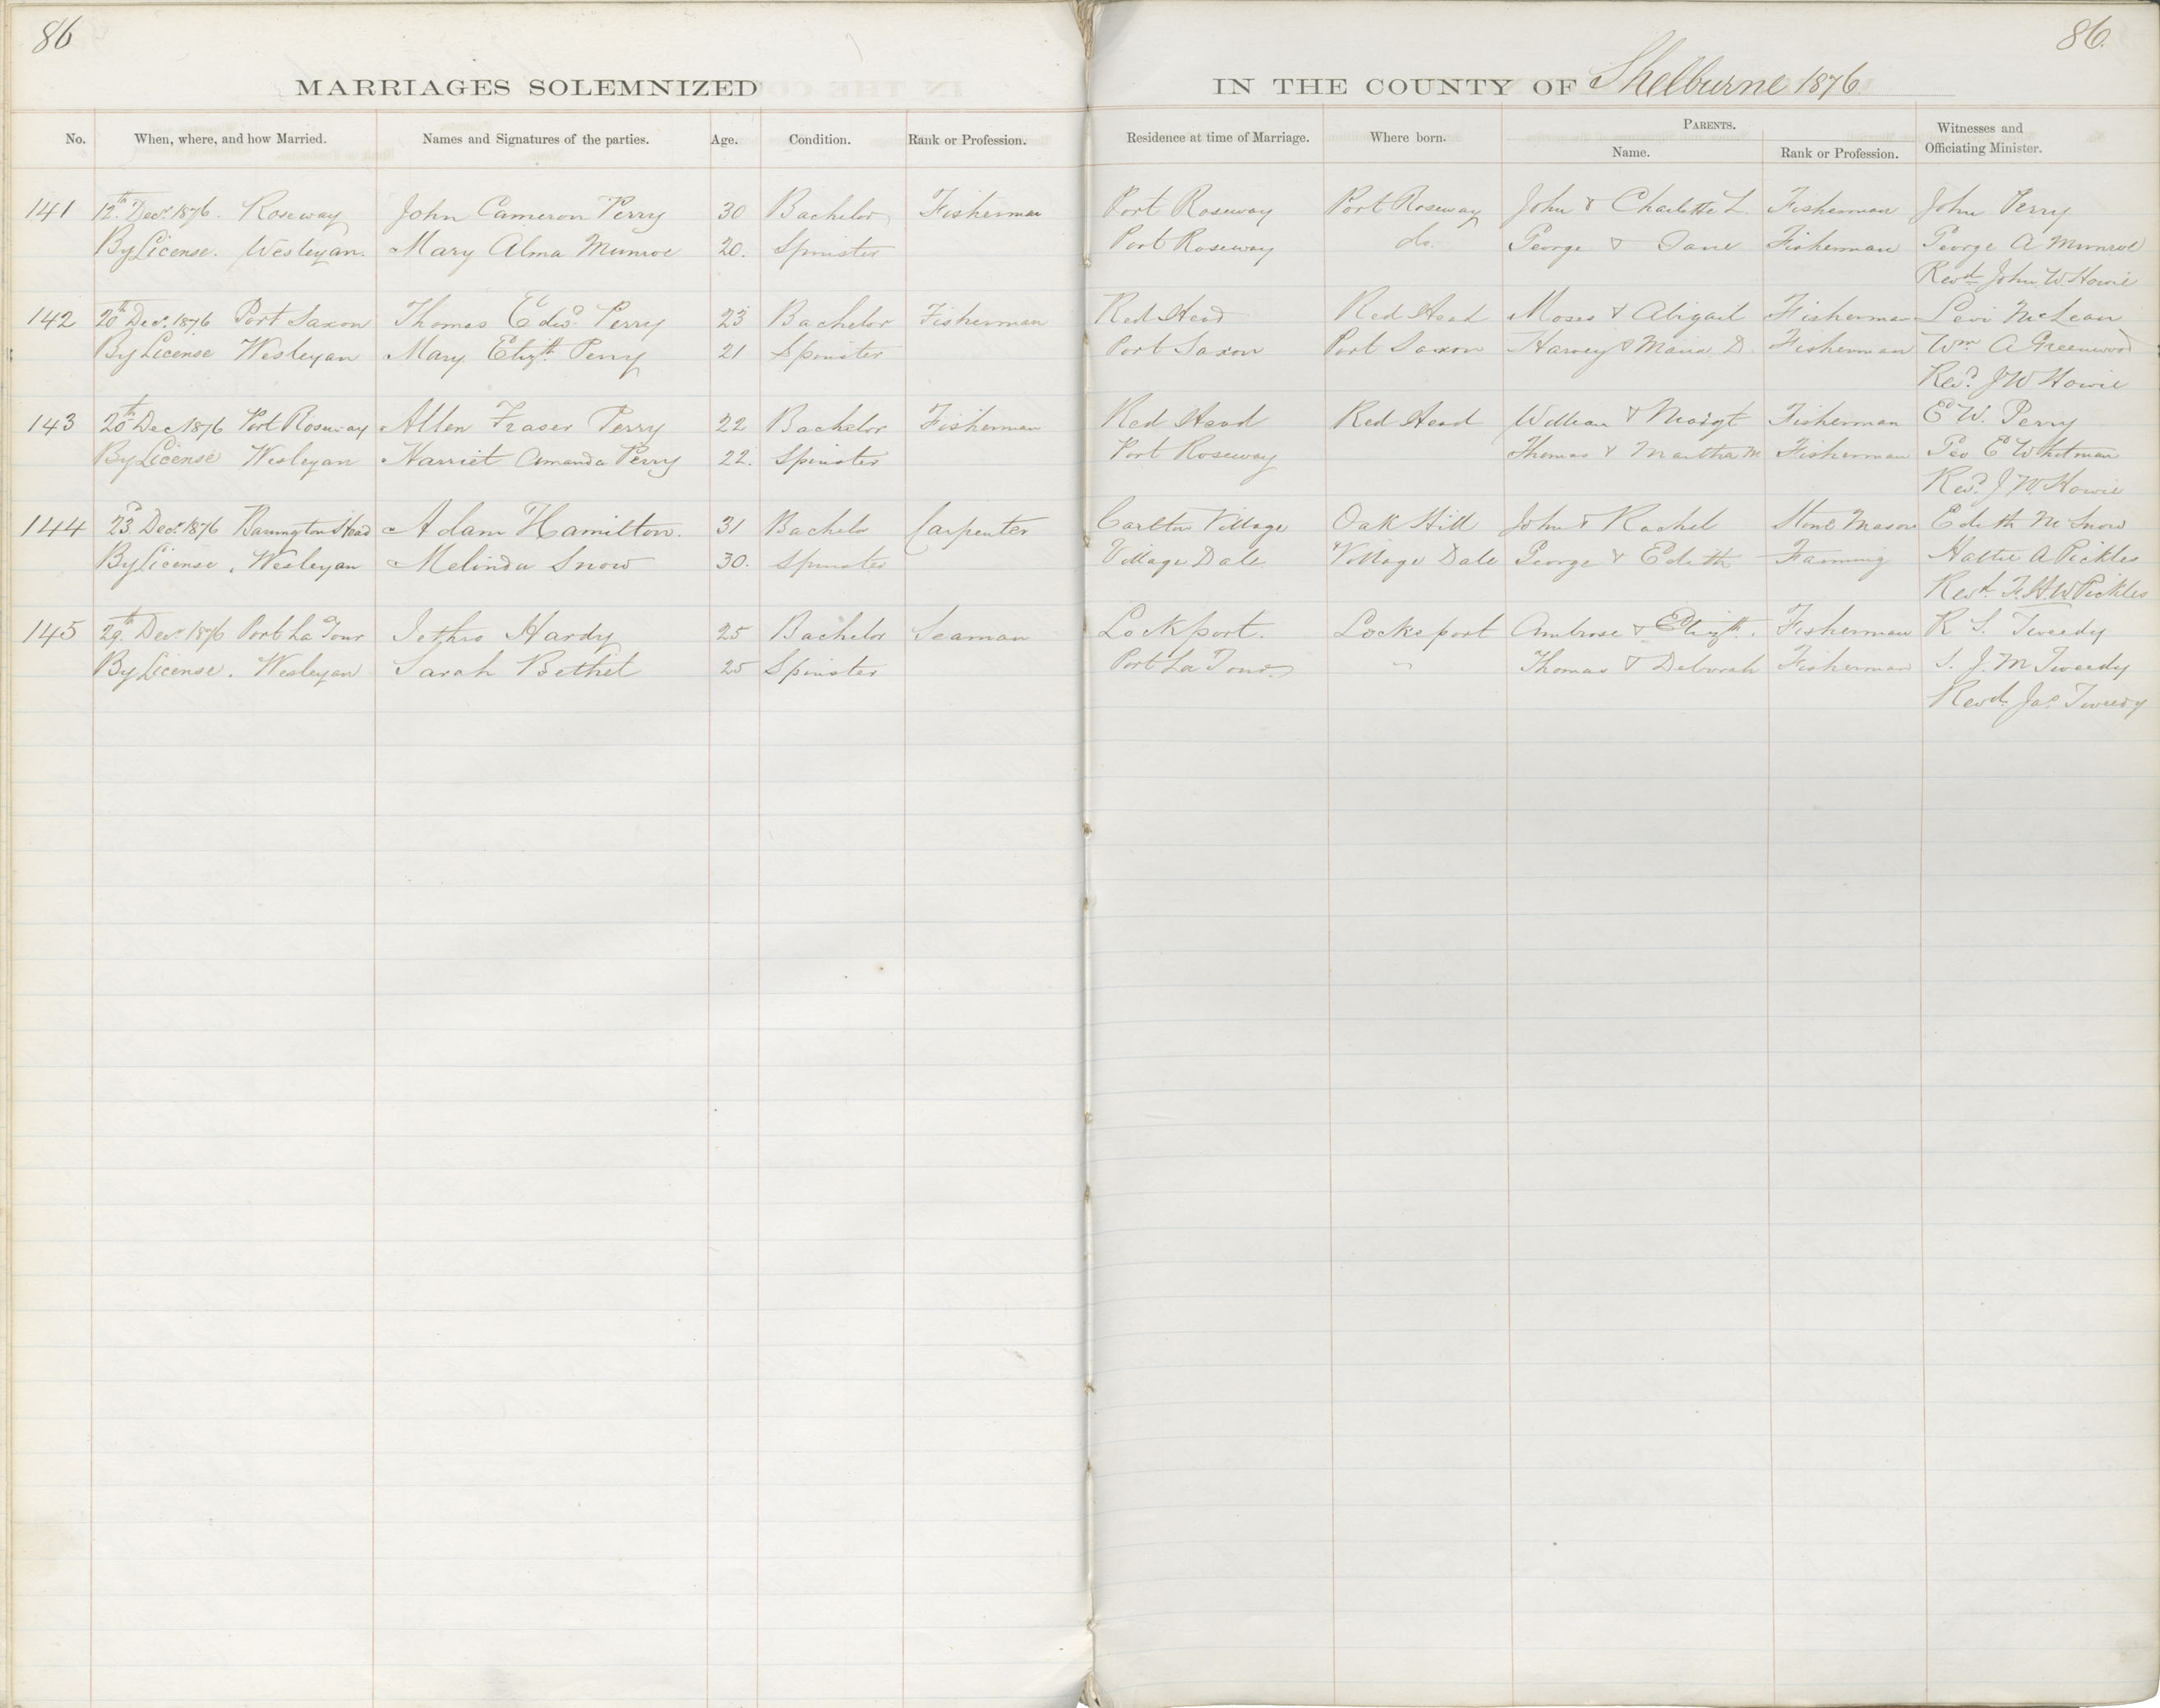 86
86.
MARRIAGES SOLEMNIZED IN THE COUNTY OF Shelburne 1876.
No. When, where, and how Married. Names and Signatures of the parties. Age. Condition. Rank or Profession. Residence at time of Marriage. Where born. PARENTS. Name. Rank or Profession. Witnesses and Officiating Minister.
141 12th Decr 1876. Roseway John Cameron Perry 30 Bachelor Fisherman Port Roseway Port Roseway John & Charlotte L. Fisherman John Perry
By License. Wesleyan. Mary Alma Munroe 20. Spinster Port Roseway do. George & Jane Fisherman George A Munroe
Revd John W. Howie
142 20th Decr 1876 Port Saxon Thomas Edwd Perry 23 Bachelor Fisherman Red Head Red Head Moses & Abigail Fisherman Levi McLean
By License Wesleyan Mary Elizth Perry 21 Spinster Port Saxon Port Saxon Harvey & Maria D. Fisherman Wm A Greenwood
Revd J W Howie
143 20th Dec 1876 Port Roseway Allen Fraser Perry 22 Bachelor Fisherman Red Head Red Head William & Margt Fisherman Ed W. Perry
By License Wesleyan Harriet Amanda Perry 22. Spinster Port Roseway Thomas & Martha M Fisherman Geo E Whitman
Revd J W. Howie
144 23d Decr 1876 Barrington Head Adam Hamilton. 31 Bachelor Carpenter Carlton Village Oak Hill John & Rachel Stone Mason Edith M Snow
By License. Wesleyan Melinda Snow 30. Spinster Village Dale Village Dale George & Edith Farming Hattie A Pickles
Revd. F. H. W. Pickles
145 29th Decr 1876 Port La Tour Jethro Hardy 25 Bachelor Seaman Lockport. Lockeport Ambrose & Elizth. Fisherman R S. Tweedy
By License. Wesleyan Sarah Bethel 25 Spinster Port La Tour " Thomas & Deborah Fisherman S. J. M Tweedy
Revd. Jas Tweedy